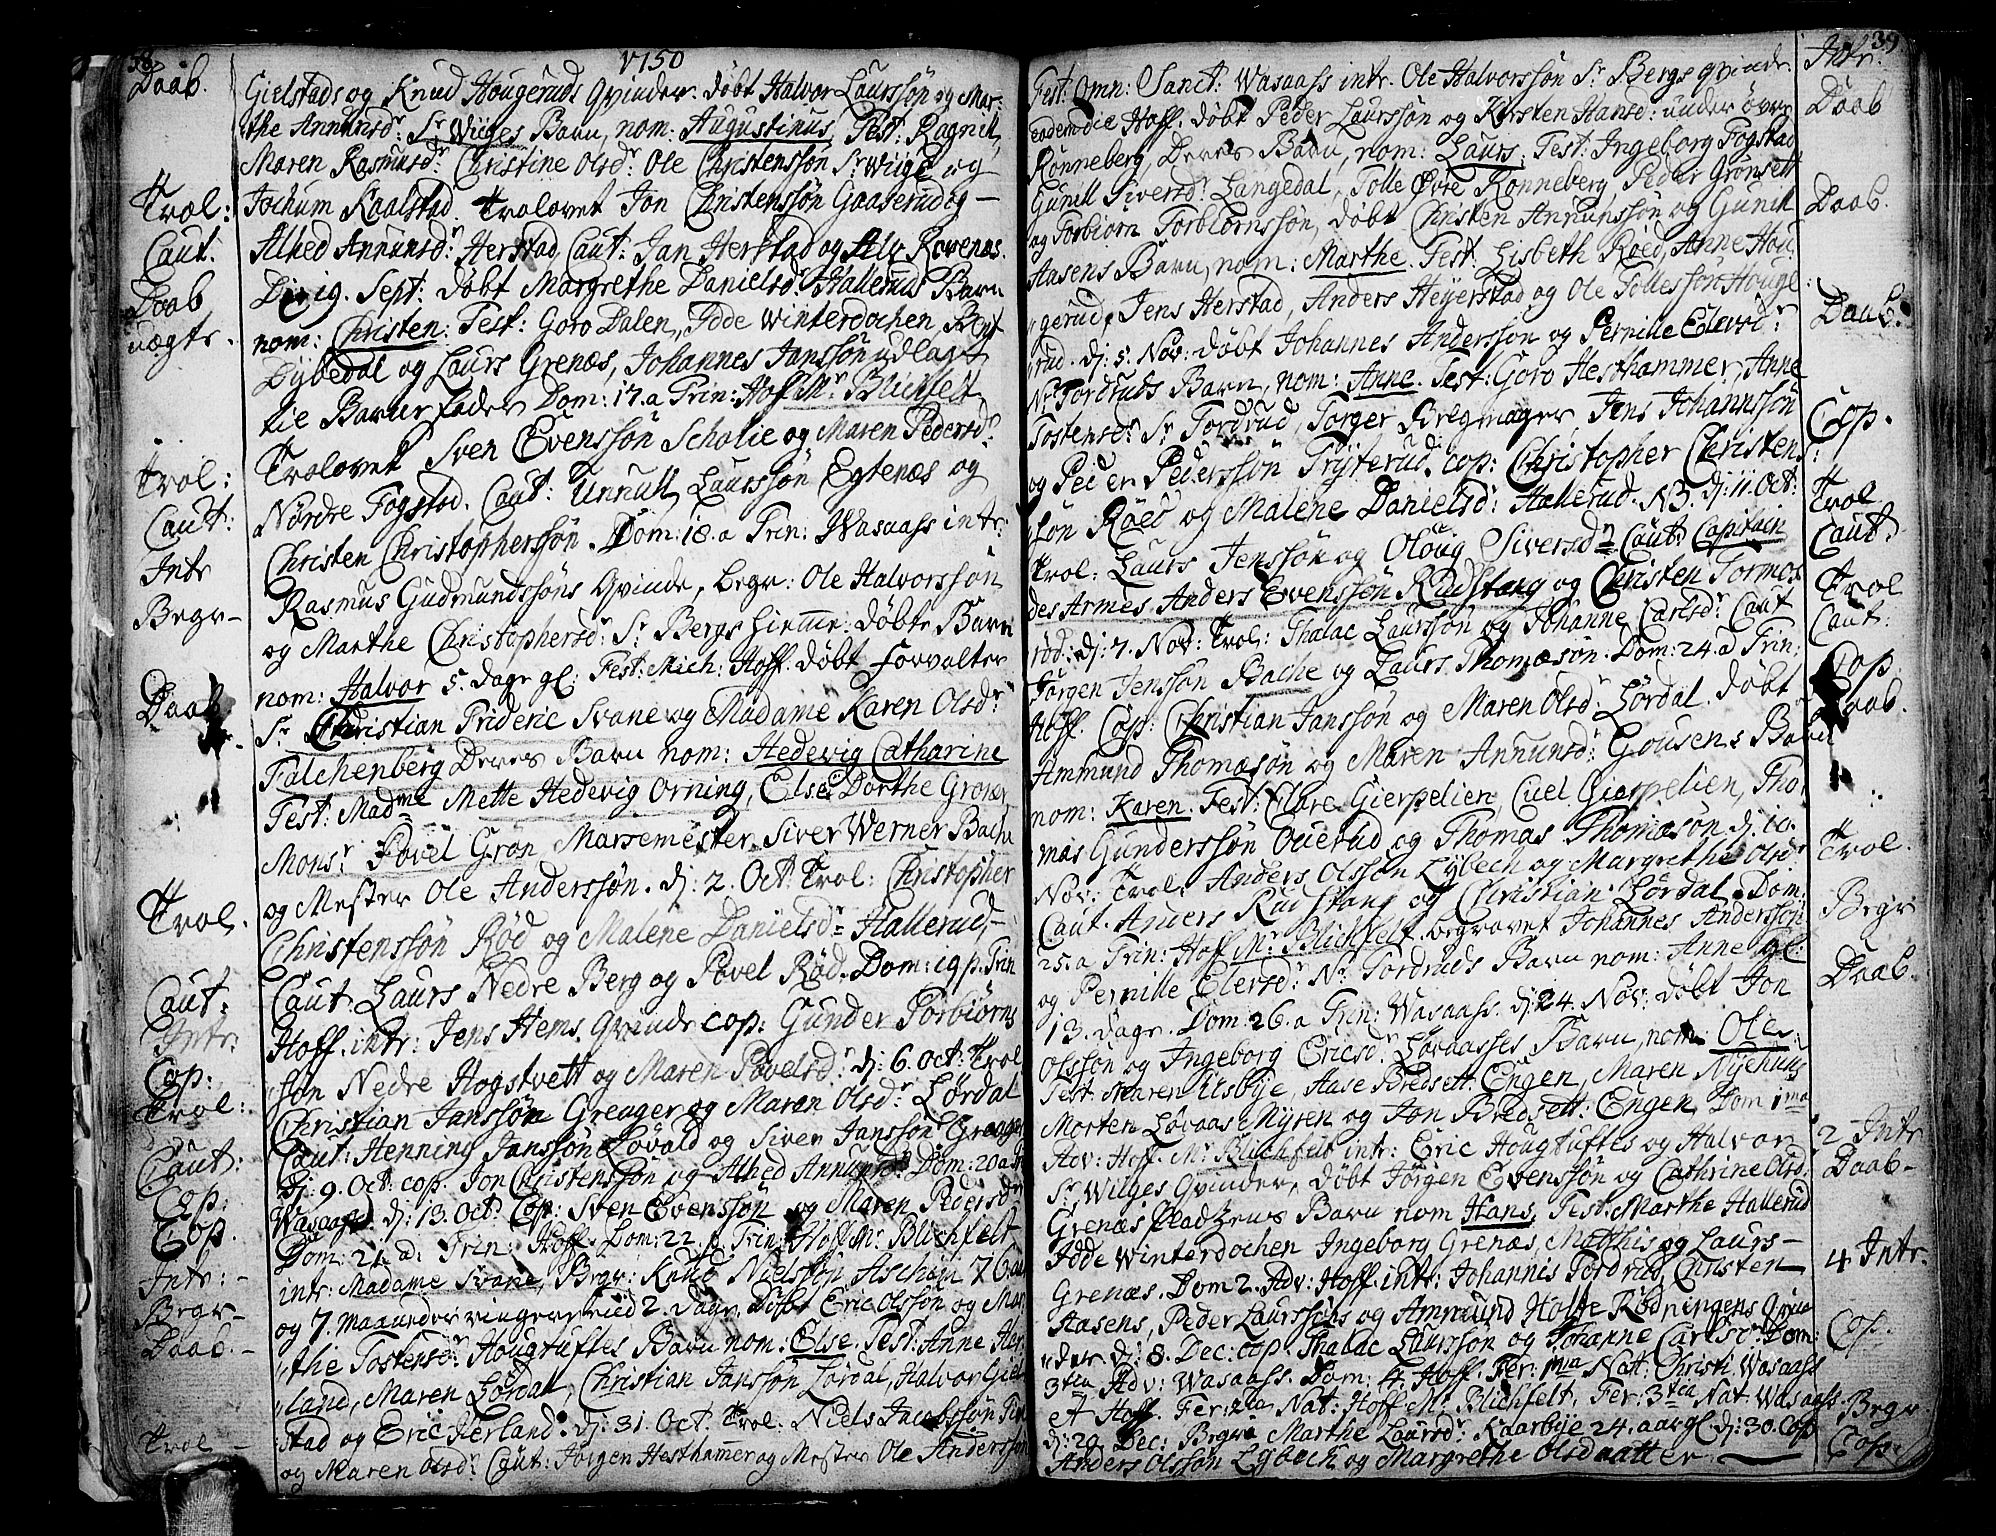 38
1750
Daab.
Gielstads og Knud Hougeruds Qvinder. døbt Halvor Laurssøn og Mar-
the Annunsdr Sr Wiiges Barn, nom. Augustinus, Test: Ragnill,
Maren Rasmusdr Christine Olsdr Ole Christenssøn Sr Wiige og
Trol: Jochum Kaalstad. Trolovet Jon Christenssøn Gaaserud og
Caut: Alhed Annunsdr Herstad, Caut: Jan Herstad og Alv Rørenæs.
Daab Die 19. Sept: døbt Margrethe Danielsdr Hallerud Barn
uægte. nom: Christen: Test: Goro Dalen, Idde Winterdochen, Bent
Dybedal og Laurs Grenæs, Johannes Janssøn udlagt
til Barnefader Dom: 17. a Trin: Hoff Mr Blichfelt
Trol: Trolovet Sven Evenssøn Scholie og Maren Pedersdr
Caut: Nordre Fogstad. Caut: Unnull Laurssøn Egtenæs og
Intr Christen Christopherssøn. Dom: 18. a Trin: Wasaass intr:
Begr- Rasmus Gudmundssøns Qvinde, begr: Ole Halvorssøn
og Marthe Christophersdr Sr Bergs hiemme døbte Barn
nom: Halvor 5. dage gl: Fest: Mich: Hoff. døbt Forvalter
Daab Sr Christian Frideric Svane og Madame Karen Olsdr
Falchenberg Deres Barn nom: Hedevig Catharine
Test: Madme Mette Hedevig Orning, Else Dorthe Groner,
Monsr Povel Grøn Marsemester, Siver Werner Bache
og Mester Ole Anderssøn. dj: 2. Oct: Trol: Christopher
Trol. Christenssøn Rød og Malene Danielsdr Hallerud,
Caut: Caut. Laurs Nedre Berg og Povel Rød. Dom: 19 p. Trin
Intr: Hoff. intr: Jens Hems Qvinde cop: Gunder Torbiørns
Cop: søn Nedre Hogstvett og Maren Povelsdr dj: 6. Oct: Trol
Trol: Christian Janssøn Greager og Maren Olsdr Lørdal
Caut: Caut: Henning Janssøn Løvald og Siver Janssøn Greager
Cop: Dj: 9. Oct: cop. Jon Christenssøn og Alhed Annunsdr Dom: 20 a Tr
Cop. Wasaass dj: 13. Oct: Cop: Sven Evenssøn og Maren Pedersdr
Dom: 21. a: Trin: Hoff. Dom: 22. a Trin: Hoff Mr Blichfelt
Intr: - intr: Madame Svane, Begr: Knud Nielssøn Aschim 76. aar
Begr- og 7. maaneder ringere end 2. dage. Døbt Eric Olssøn og Mar
Daab. - the Tostensdr Hougtuftes Barn nom. Else, Test: Anne Hør
land, Maren Lørdal, Christian Janssøn Lørdal, Halvor Giel
stad og Eric Herland. dj: 31 Oct: Trol: Niels Jacobssøn
Trol - og Maren Olsdr Caut: Jørgen Hesthamer og Mester Ole Anderssøn
39
Fest: Omn: Sanct: Wasaass intr. Ole Halvorssøn Sr Bergs qvinde. Intr.
eodem die Hoff. døbt Peder Laurssøn og Kirsten Hansd: under øvre Daab
Rønneberg, Deres Barn, nom: Laurs. Test: Ingeborg Fogstad
Gunill Siversdr Langedal, Tolle Øvre Rønneberg Peder Grønsett
og Torbiørn Torbiørnssøn, døbt Christen Annunssøn og Gunill Daab.
Aasens Barn, nom: Marthe. Test. Lisbeth Røed, Anne Hou
gerud, Jens Herstad, Anders Heyerstad og Ole Tollessøn Houge
rud. dj: 5. Nov: døbt Johannes Anderssøn og Pernille Elersdr Daab.
Nr Tordruds Barn, nom: Anne. Test: Goro Hesthammer, Anne
Tostensdr Sr Tordrud, Torger Bregmager, Jens Johannssøn
og Peder Pederssøn Tryterud. cop: Christopher Christens Cop.
søn Røed og Malene Danielsd: Hallerud. NB. dj: 11. Oct:
Trol: Laurs Jenssøn og Oloug Siversdr Caut: Capitain Trol Caut:
des Armes Anders Evenssøn Rudstang og Christen Tormos
rød: dj: 7. Nov: Trol: Thalac Laurssøn og Johanne Carlsdr Caut Trol
Jørgen Jenssøn Bache og Laurs Thomæsøn. Dom: 24. a Trin: Caut:
Hoff. Cop: Christian Janssøn og Maren Olsdr Lørdal. døbt Cop
Ammund Thomæsøn og Maren Annunsdr Gousens Barn Daab.
nom: Karen. Test: Clare Gierpelien, Cuel Gierpelien, Tho
mas Gunderssøn Ouestad og Thomas Thomæsøn. dj: 10.
Nov: Trol. Anders Olssøn Lybech og Margrethe Olsdr Trol.
Caut. Anders Rudstang og Christian Lørdal. Dom:
25. a Trin: Hoff Mr Blichfelt. begravet Johannes Anderssøn Begr
og Pernille Elersdr Nr Tordruds Barn nom: Anne gl:
13. dage. Dom: 26. a Trin: Wasaass. dj: 24. Nov: døbt Jon Daab.
Olssøn og Ingeborg Ericsdr Løvaasses Barn, nom: Ole.
Test: Maren Elsbye, Aase Bredsett: Engen, Maren Nyehuus
Morten Løvaas Myren og Jon Bredsett: Engen, Dom 1ma
Adv: Hoff. Mr Blichfelt intr: Eric Hougtuftes og Halvor 2. Intr
Sr Wilges Qvinder, døbt Jørgen Evenssøn og Cathrine Olsd: Daab-
Grenæs Pladzens Barn nom Hans, Test: Marthe Hallerud
Idde Winterdochen Ingeborg Grenæs, Matthis og Laurs-
Grenæs. Dom 2. Adv: Hoff intr: Johannis Tordrud, Christen 4 Intr.
Aasens, Peder Laurssøns og Ammund Holte Rødningens Qvin
der. dj: 8. Dec: cop. Thalac Laurssøn og Johanne Carlsdr Dom: Cop.
3tia Adv: Wasaass. Dom: 4. Hoff. Fer: 1ma Nat: Christi Wasaass
et Hoff. Fer: 2da Nat: Hoff Mr Blichfelt, Fer: 3tia Nat: Wasaass.
dj: 29. Dec: Begr: Marthe Laursdr Kaarbye 24. aar gl dj: 30. Cop Begr
Anders Olssøn Lybech og Margrethe Olsdaatter. Cop.